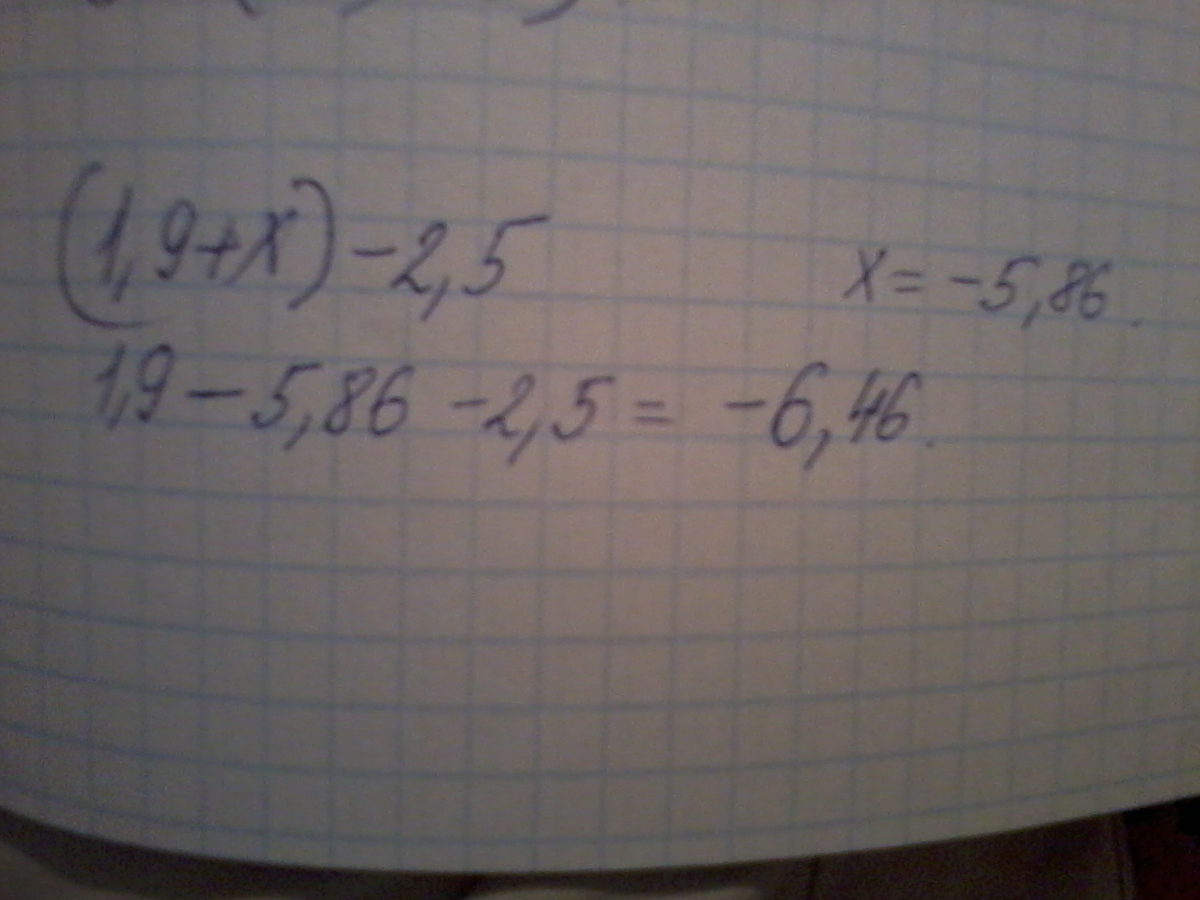 (1,9+x)-2,5 x=-5,86.
1,9-5,86-2,5=-6,46.